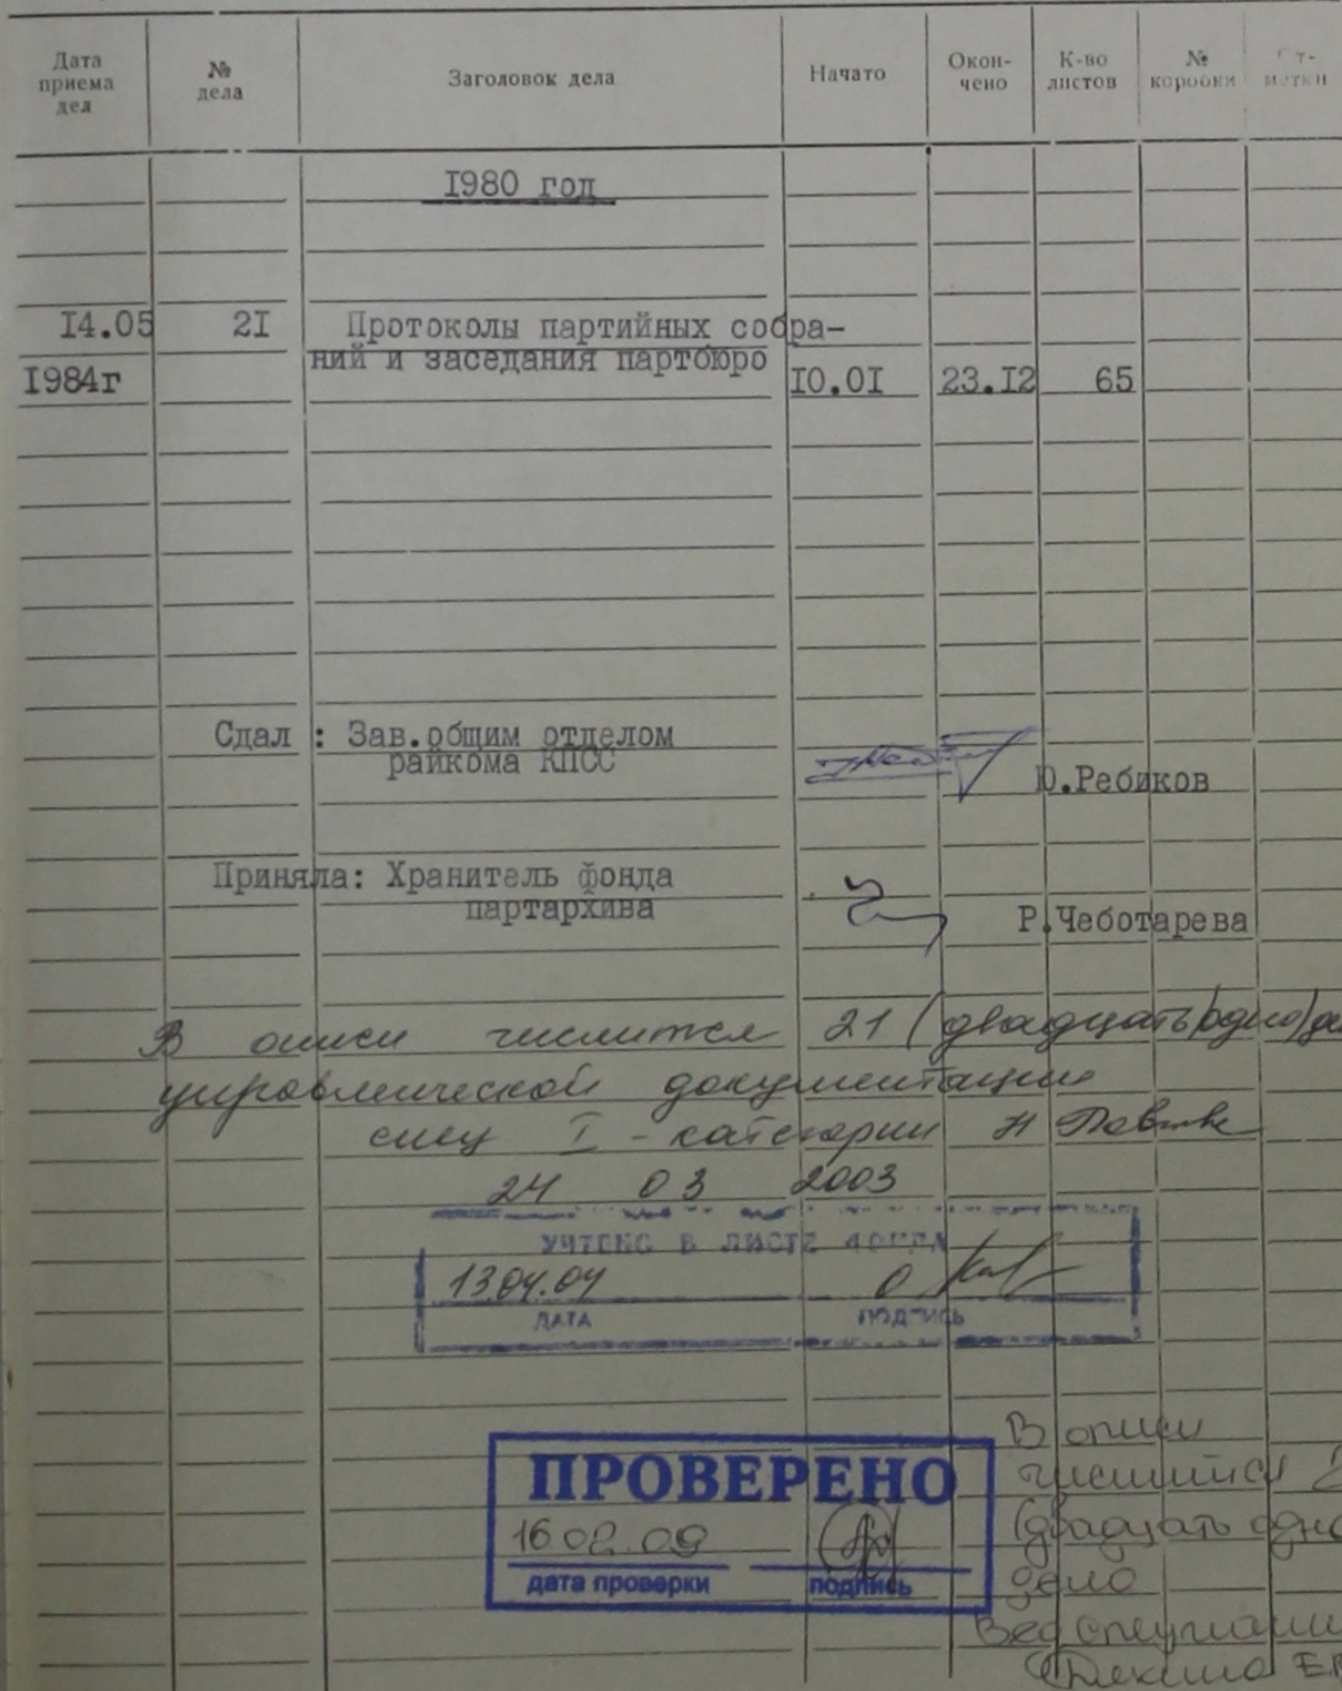 Дата приема дел
№ дела
Заголовок дела
Начато
Окон-чено
К-во листов
№ коробки
От-метки
I980 год
I4.05 2I Протоколы партийных собра-
ний и заседания партбюро
I984г I0.0I 23.I2 65
Сдал : Зав.общим отделом
райкома КПСС
Ю.Ребиков
Приняла: Хранитель фонда
партархива
Р.Чеботарева
В описи числится 21 (двадцать одно) де
управленческой документации
спец I - категории
24 03 2003
УЧТЕНО В ЛИСТЕ ФОНДА
13.04.04
ДАТА ПОДПИСЬ
ПРОВЕРЕНО
16.02.09
дата проверки подпись
В описи
числится 2
(двадцать одно
дело
Вед специали